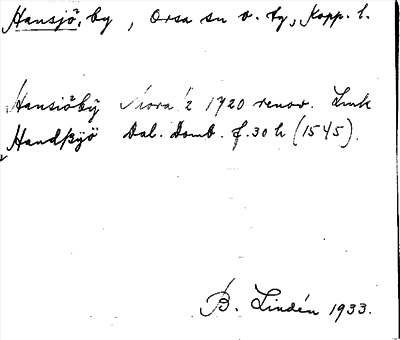 Hansjö, by, Orsa sn o. tg, Kopp. l.
Hansiöbÿ Mora 2 1720 renov. Lmk
Handkyö Dal. Domb. f. 30 h (1545).
B. Lindén 1933.